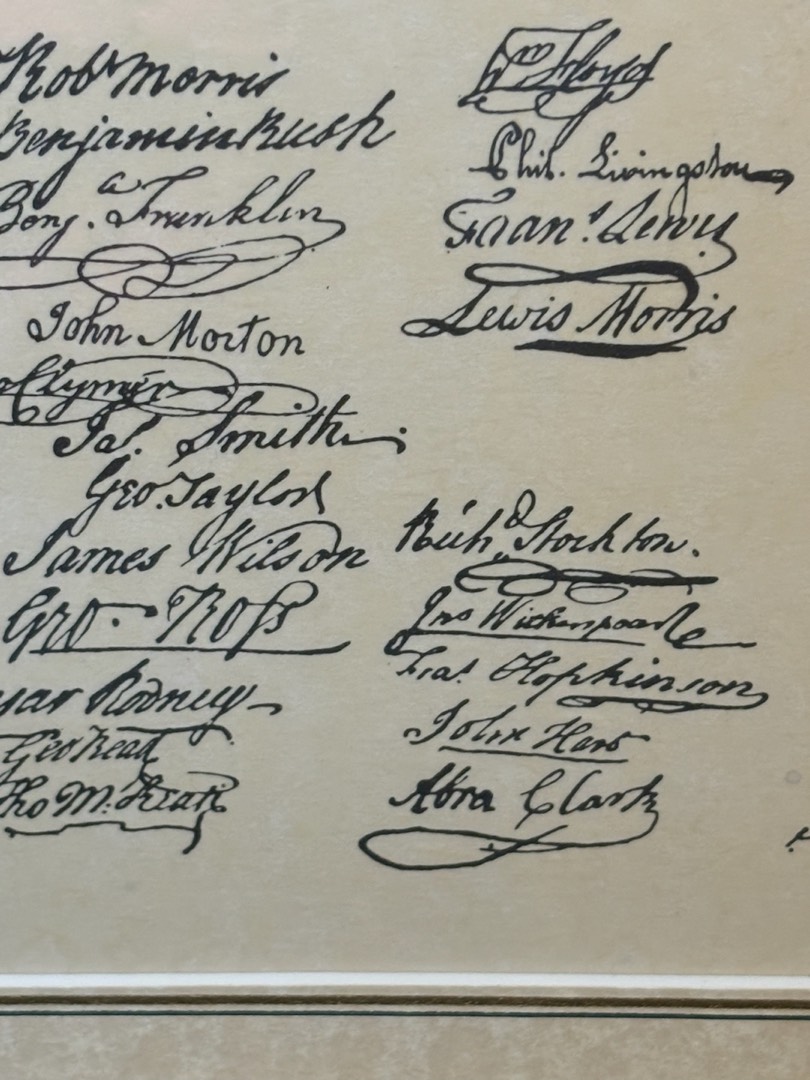 Robt Morris
Benjamin Rush
Benj. a Franklin
John Morton
Clymer
Jas. Smith
Geo. Taylor
James Wilson
Geo. Ross
sar Rodney
Geo Read
Tho M: Kean
Wm Floyd
Phil. Livingston
Frans. Lewis
Lewis Morris
Richd. Stockton
Jno Witherspoon
Fras. Hopkinson
John Hart
Abra Clark